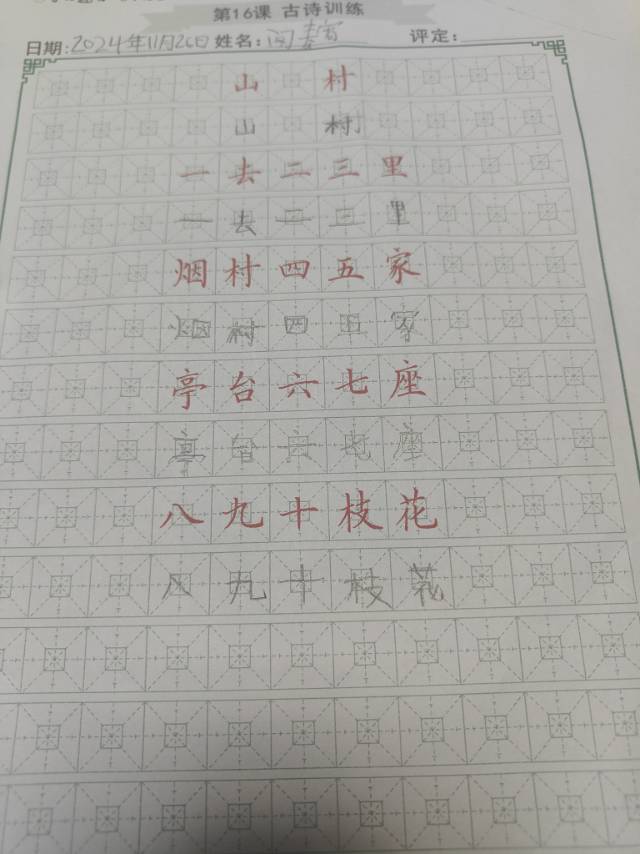 第16课 古诗训练
日期:2024年11月26日 姓名: 评定:
山村
山村
一去二三里
一去二三里
烟村四五家
烟村四五家
亭台六七座
亭台六七座
八九十枝花
八九十枝花